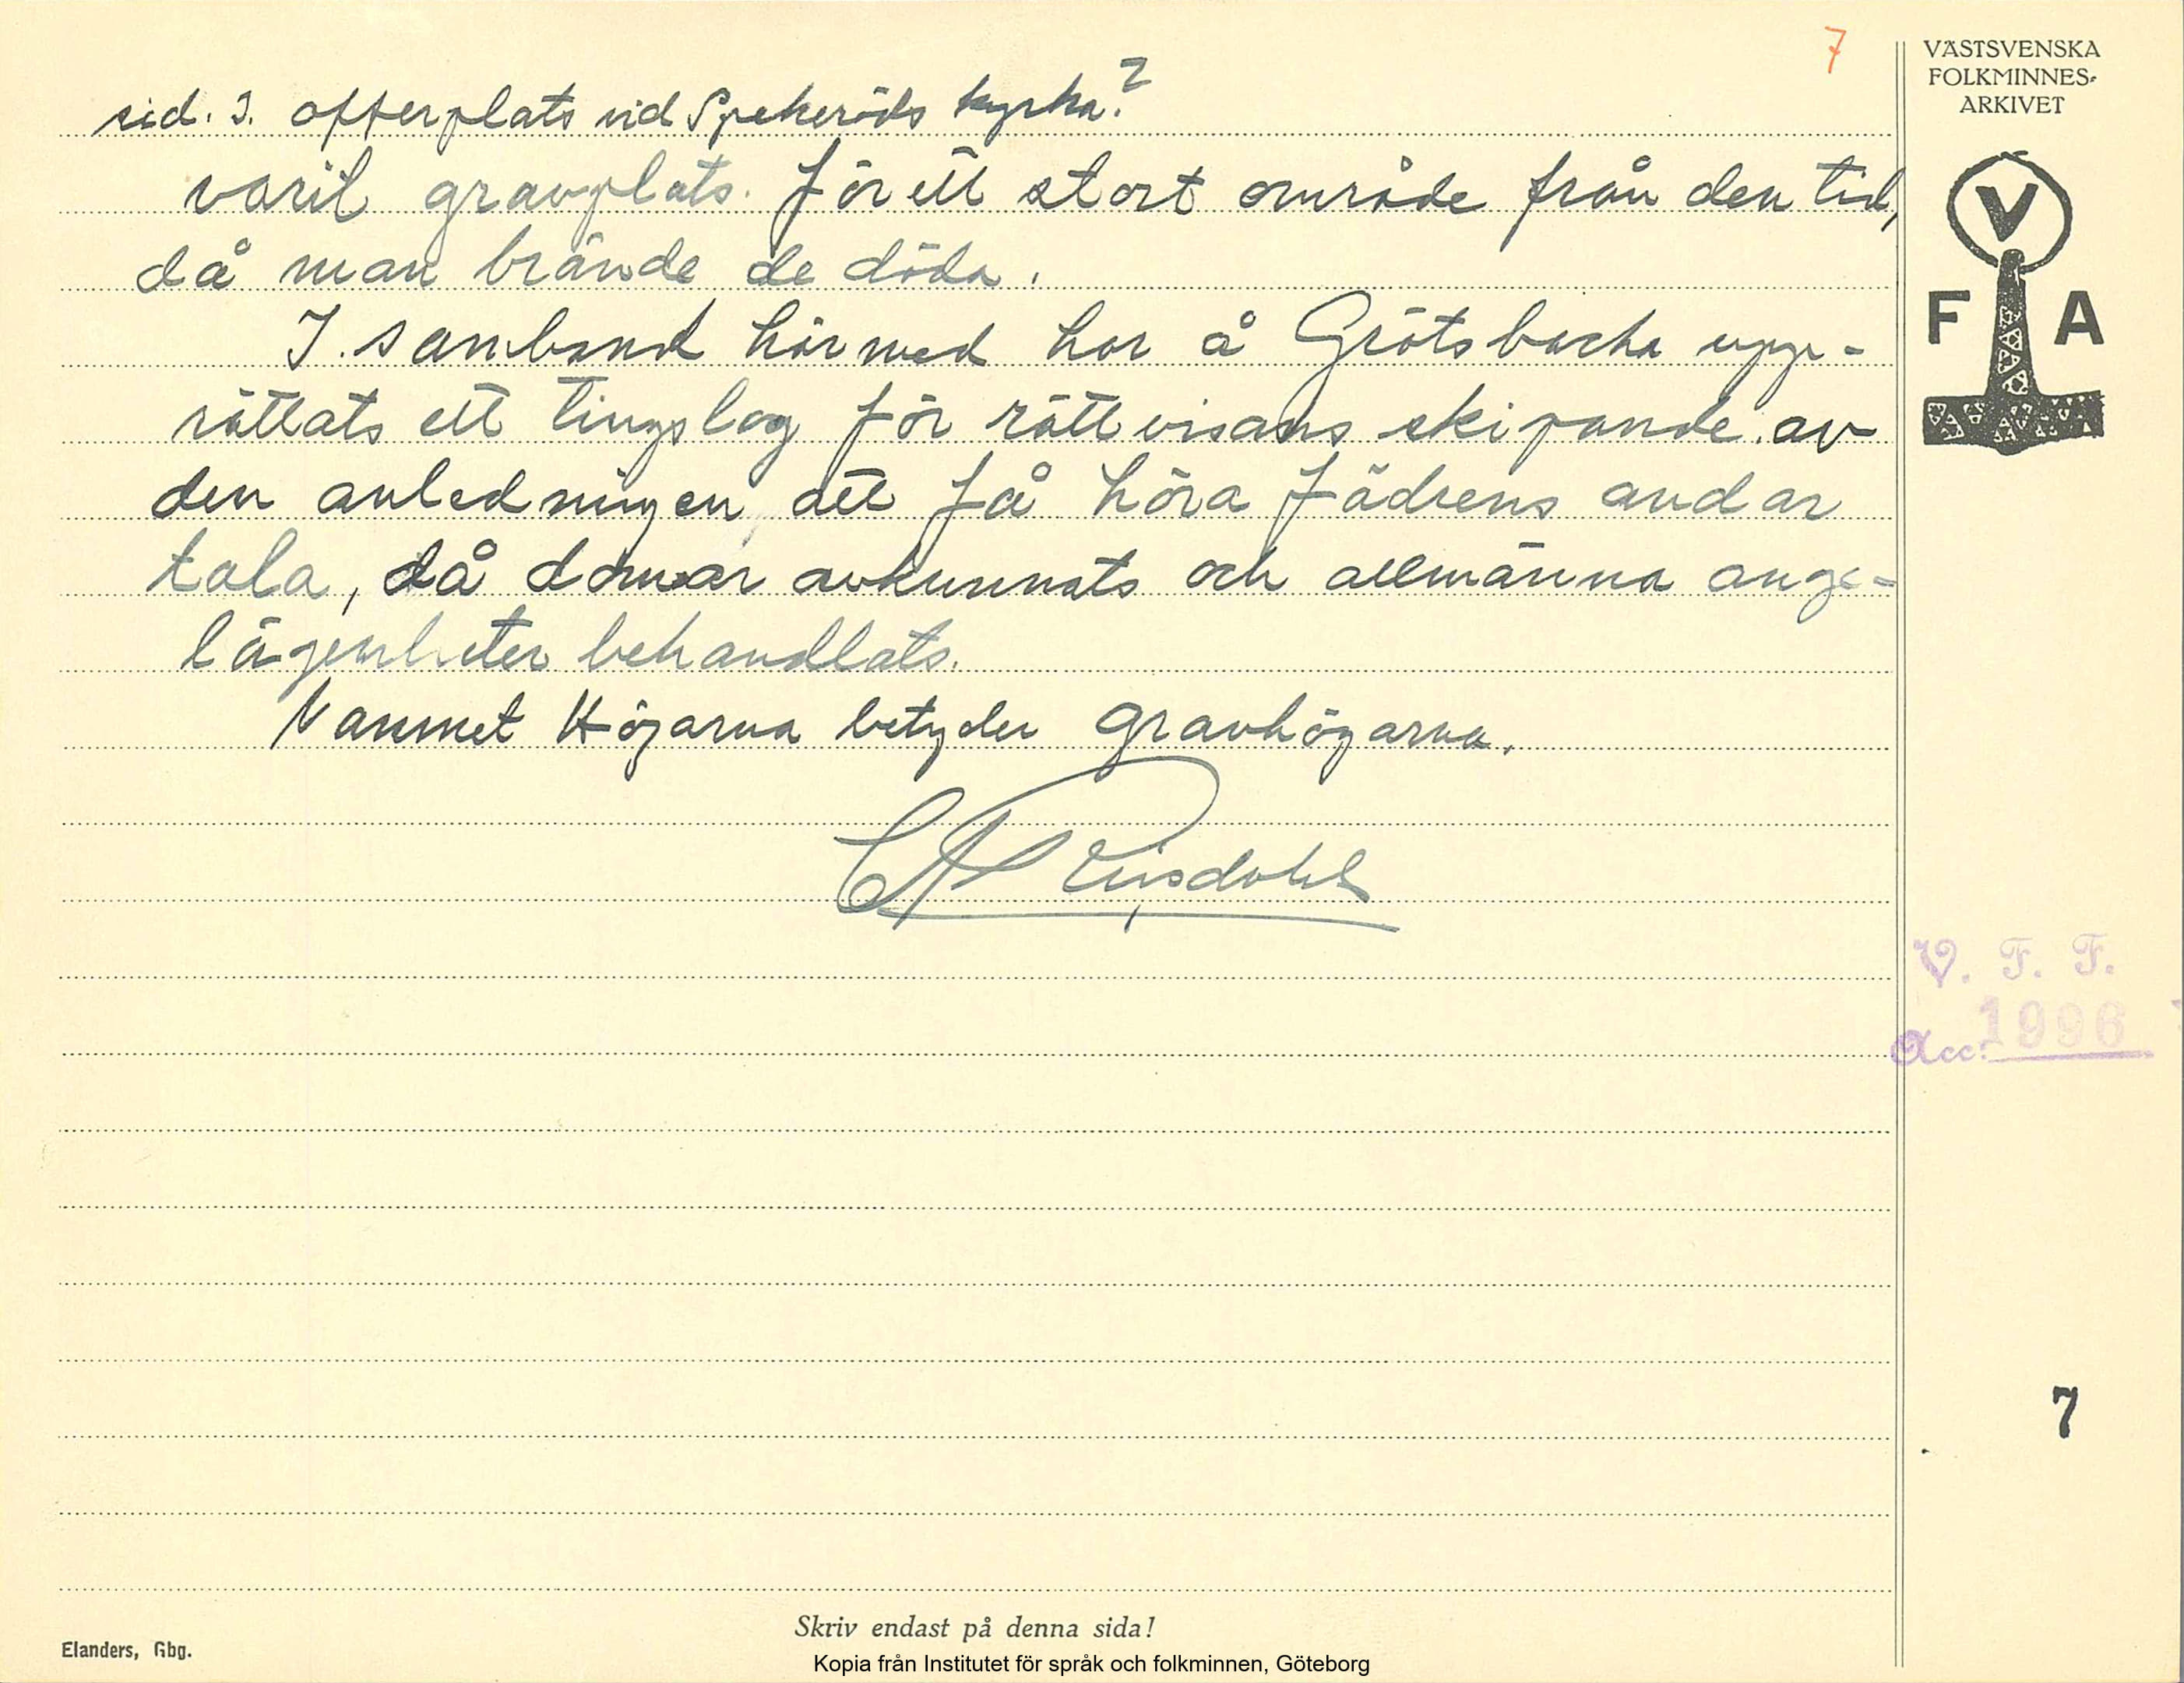 7
sid. 3. offerplats vid Spekeröds kyrka?
varit gravplats. för ett stort område från den tid,
då man brände de döda.
I samband härmed har å Grötsbacka upp-
rättats ett tingslag för rättvisans skipande av
den anledningen att få höra fädrens andar
tala, då domar avkunnats och allmänna ange-
lägenheter behandlats.
Namnet Högarna betyder gravhögarna.
VÄSTSVENSKA
FOLKMINNES-
ARKIVET
V
F A
V. F. F.
Acc. 1996
7
Skriv endast på denna sida!
Elanders, Gbg.
Kopia från Institutet för språk och folkminnen, Göteborg